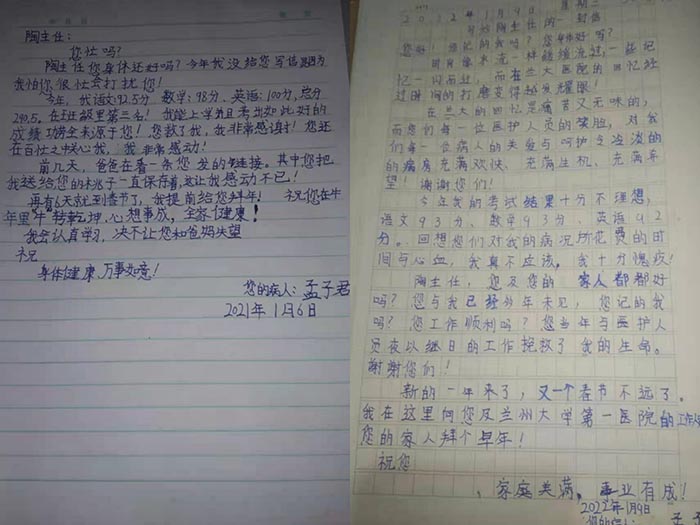 陶主任:
您忙吗?
陶主任您身体还好吗?今年我没给您写信是因为
我怕你很忙会打扰您!
今年,我语文92.5分 数学:98分、英语:100分,总分
290.5,在班级里第三名!我能上学并且考出如此好的
成绩功劳全来源于您!您救了我,我非常感谢!您还
在百忙之中关心我,我非常感动!
前几天,爸爸在看一条您发的链接。其中您把
我送给您的 一直保存着,这让我感动不已!
再有6天就到春节了,我提前给您拜年! 祝您在牛
年里牛转乾坤、心想事成,全家健康!
我会认真学习,决不让您和爸妈失望
祝
身体健康、万事如意!
您的病人:孟子君
2021年1月6日
2022年1月9日 星期
给陶主任的一封信
您好!您记的我吗?您身体好吗?
时间像水流一样缓缓流过,一些记
忆一闪而过,而在兰大医院的回忆经
过时间的打磨变得越发耀眼!
在兰大的回忆是痛苦又无味的,
而您们每一位医护人员的笑脸,对我
们每一位病人的关爱与呵护令冷淡的
的病房充满欢快、充满生机、充满希
望!谢谢您们!
今年我的考试结果十分不理想,
语文93分、数学93分、英语92
分。回想您们对我的病况所花费的时
间与心血,我真不应该。我十分愧疚!
陶主任,您及您的家人都都好
吗?您与我已经多年未见,您记的我
吗?您工作顺利吗?您当年与医护人
员夜以继日的工作挽救了我的生命。
谢谢您们!
新的一年来了,又一个春节不远了。
我在这里向您及兰州大学第一医院的工作
您的家人拜个早年!
祝您
、家庭美满、事业有成!
2022年1月9日
您的病人:孟子